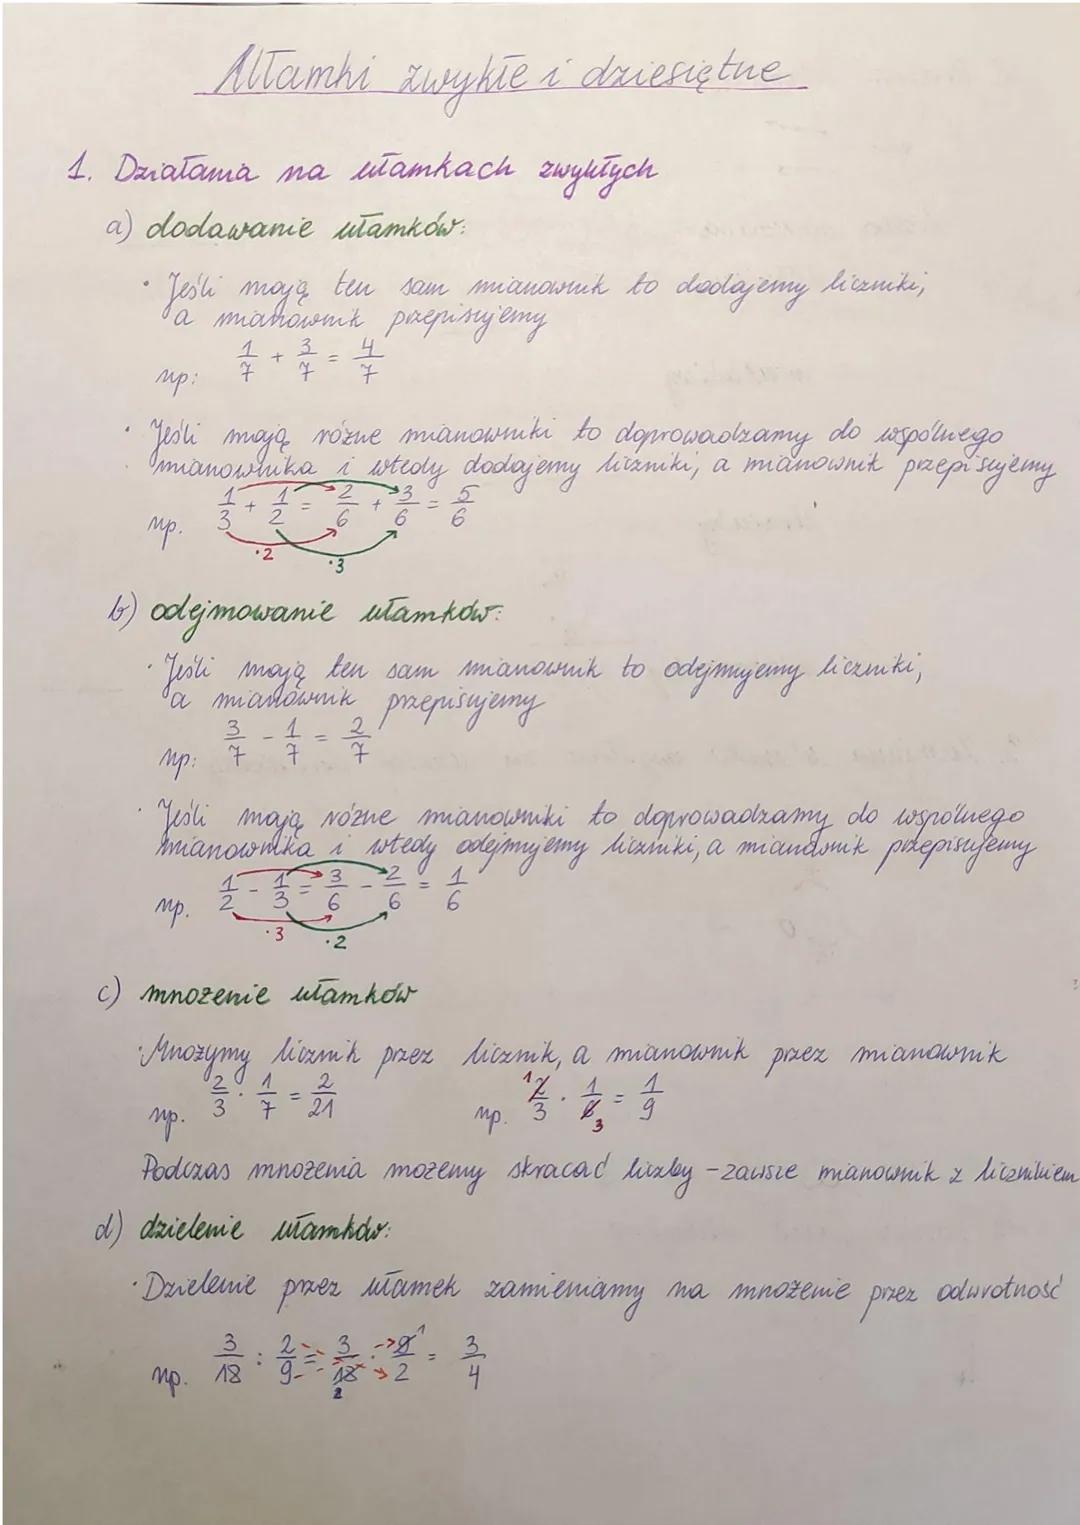 Ułamki zwykłe i dziesiętne
1. Działania na ułamkach zwykłych
a) dodawanie ułamków:
• Jeśli mają ten sam mianownik to dodajemy liczniki,
a mianownik przepisujemy
np: 1/7 + 3/7 = 4/7
• Jeśli mają różne mianowniki to doprowadzamy do wspólnego
mianownika i wtedy dodajemy liczniki, a mianownik przepisujemy
np. 1/3 + 1/2 = 2/6 + 3/6 = 5/6
·2 ·3
b) odejmowanie ułamków:
• Jeśli mają ten sam mianownik to odejmujemy liczniki,
a mianownik przepisujemy
np: 3/7 - 1/7 = 2/7
• Jeśli mają różne mianowniki to doprowadzamy do wspólnego
mianownika i wtedy odejmujemy liczniki, a mianownik przepisujemy
np. 1/2 - 1/3 = 3/6 - 2/6 = 1/6
·3 ·2
c) mnożenie ułamków
• Mnożymy licznik przez licznik, a mianownik przez mianownik
np. 2/3 · 1/7 = 2/21 np. 1 2/3 · 1/6 3 = 1/9
Podczas mnożenia możemy skracać liczby - zawsze mianownik z licznikiem
d) dzielenie ułamków:
• Dzielenie przez ułamek zamieniamy na mnożenie przez odwrotność
np. 3/18 : 2/9 = 3/18 2 · 9 1/2 = 3/4